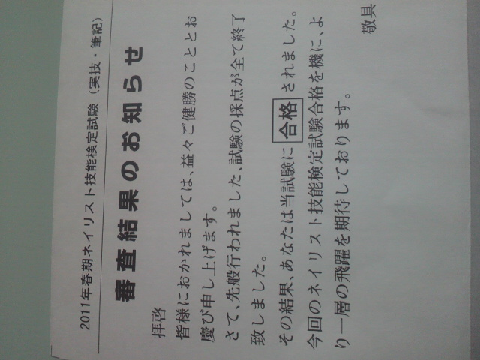 2011年春期ネイリスト技能検定試験（実技・筆記）
審査結果のお知らせ
拝啓
皆様におかれましては、益々ご健勝のこととお
慶び申し上げます。
さて、先般行われました、試験の採点が全て終了
致しました。
その結果、あなたは当試験に 合格 されました。
今回のネイリスト技能検定試験合格を機に、よ
り一層の飛躍を期待しております。
敬具